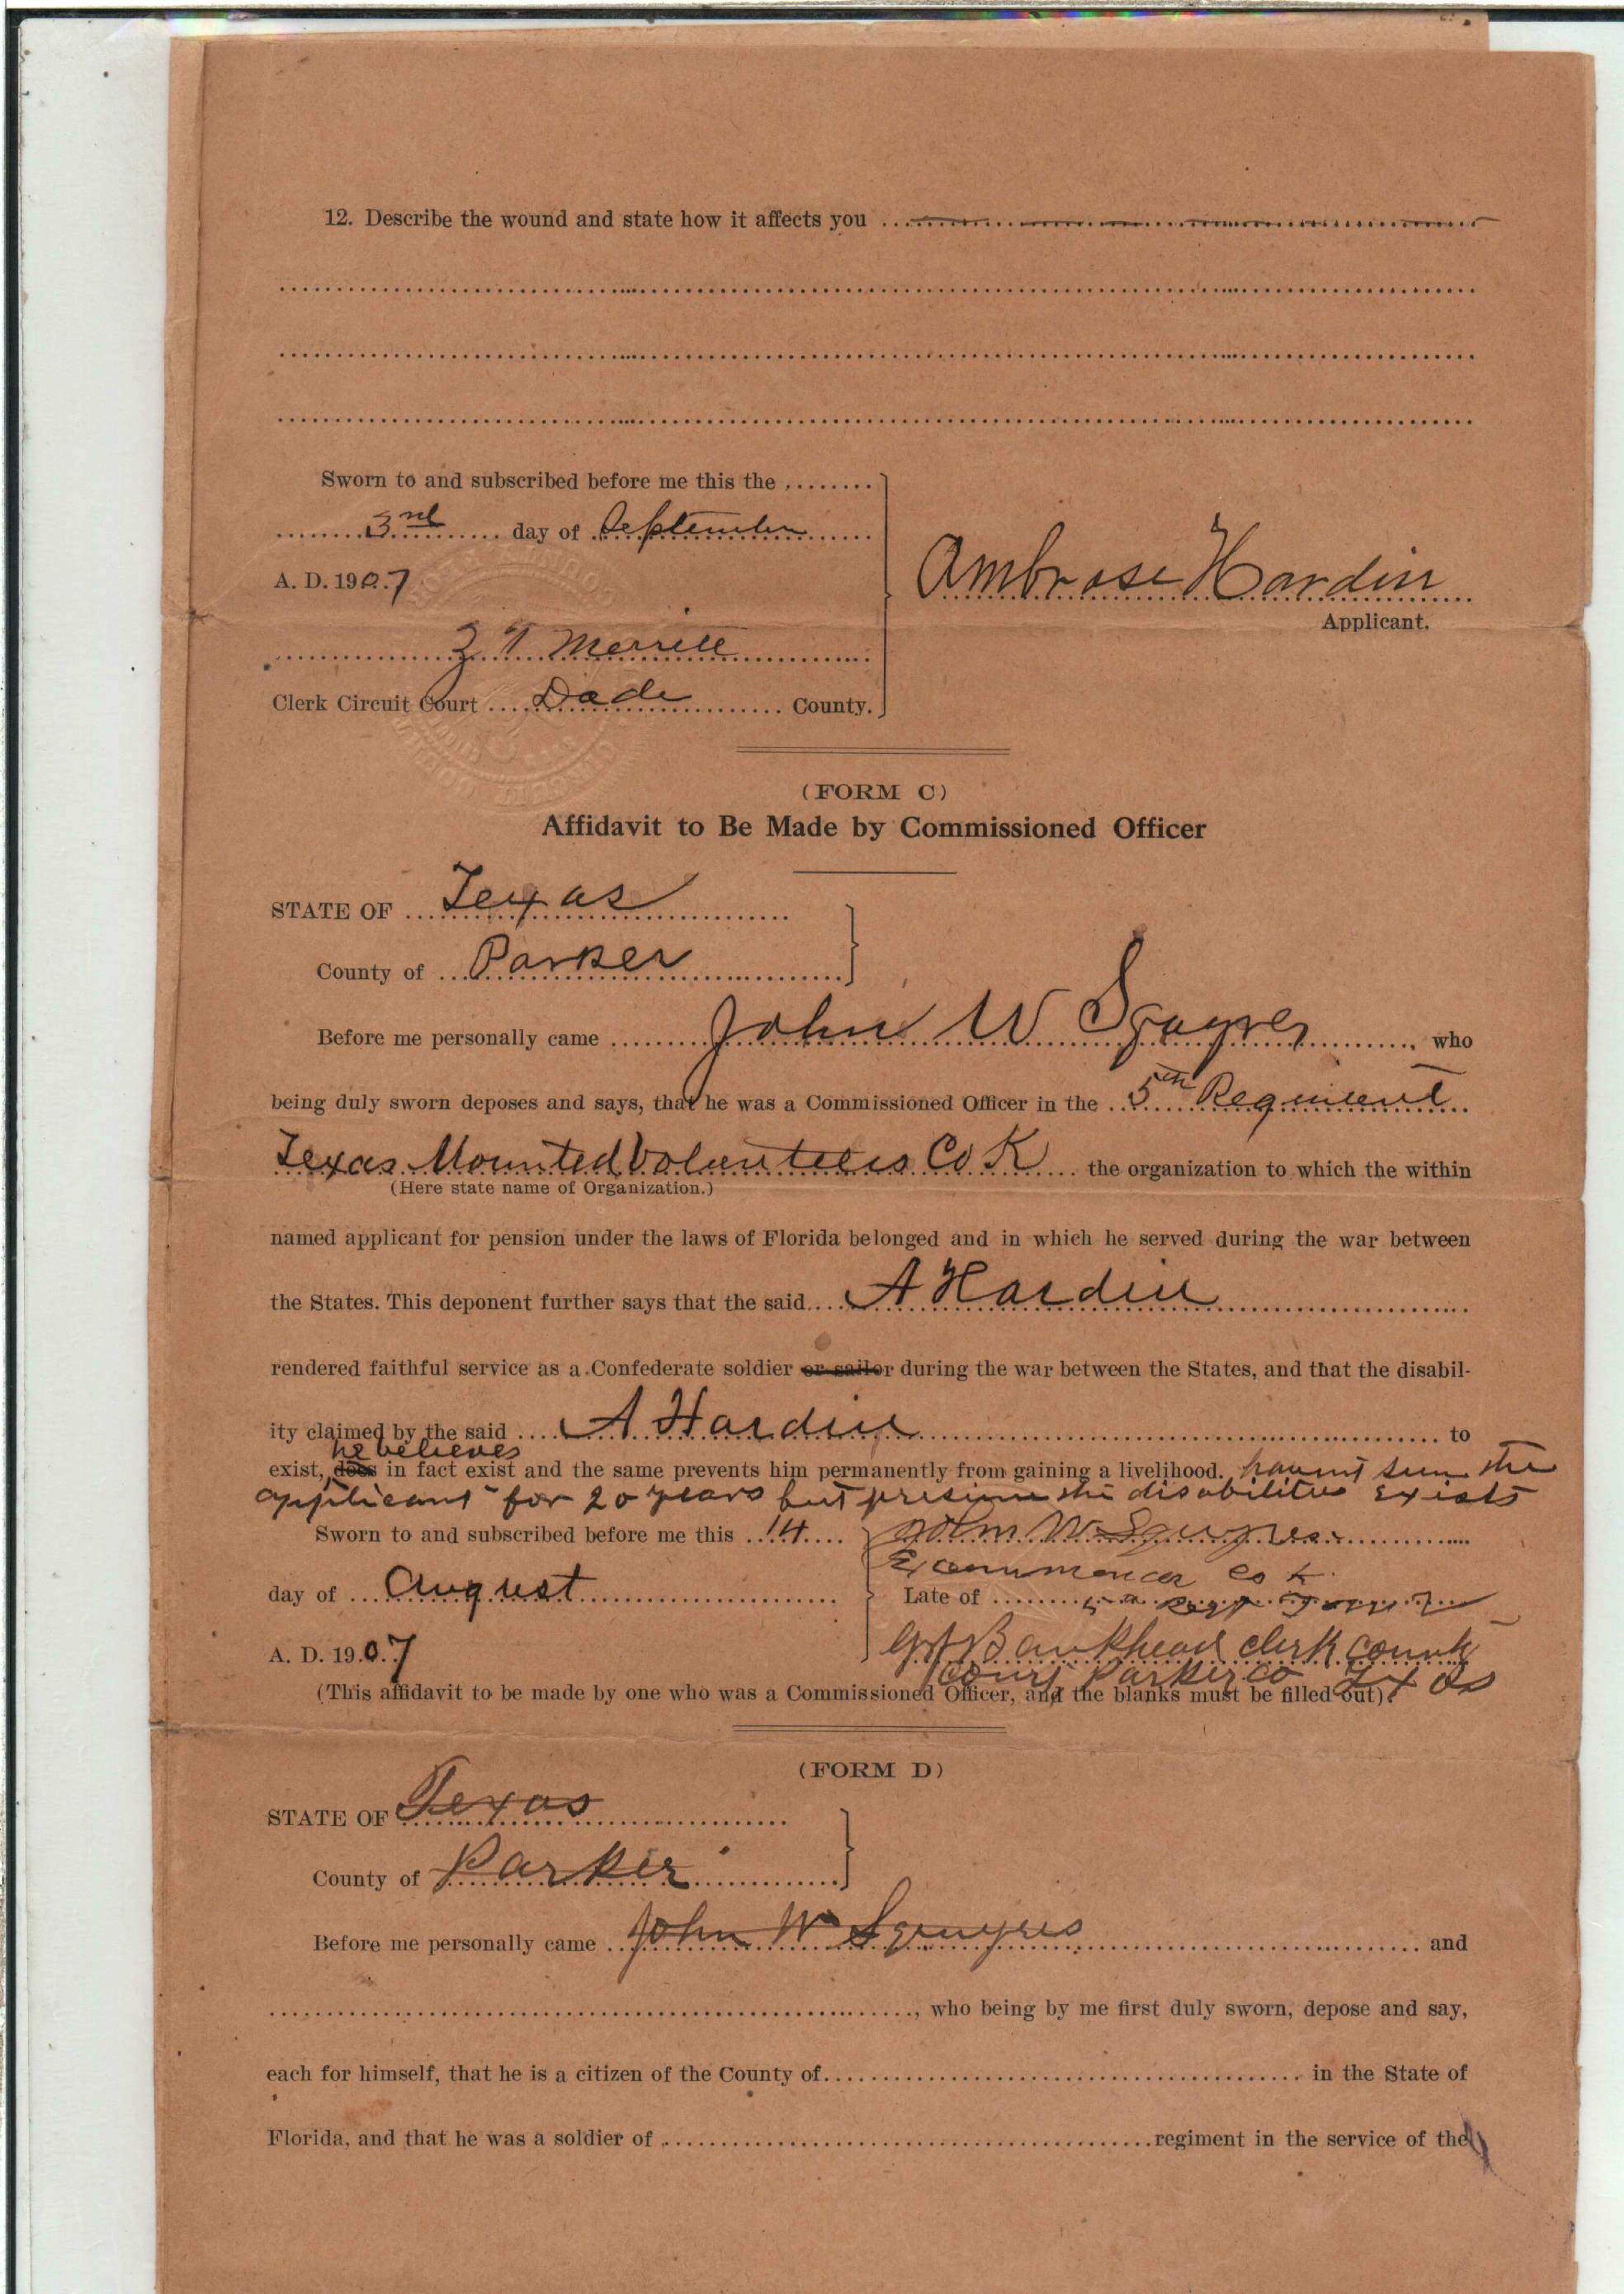 12. Describe the wound and state how it affects you
Sworn to and subscribed before me this the
3rd day of September
A. D. 1907
Z T Merritt
Clerk Circuit Court Dade County.
Ambrose Hardin
Applicant.
(FORM C)
Affidavit to Be Made by Commissioned Officer
STATE OF Texas
County of Parker
Before me personally came John W Squyres who
being duly sworn deposes and says, that he was a Commissioned Officer in the 5th Regiment
Texas Mounted Volunteers Co K the organization to which the within
(Here state name of Organization.)
named applicant for pension under the laws of Florida belonged and in which he served during the war between
the States. This deponent further says that the said A Hardin
rendered faithful service as a Confederate soldier or sailor during the war between the States, and that the disabil-
ity claimed by the said A Hardin to
he believes
exist, does in fact exist and the same prevents him permanently from gaining a livelihood. havent seen the
applicant for 20 years but presume the disabilities exists
Sworn to and subscribed before me this 14
day of August
A. D. 1907
John W Squyres
Co K
Late of
Bankhead clerk County
Court Parker co Texas
(This affidavit to be made by one who was a Commissioned Officer, and the blanks must be filled out).
(FORM D)
STATE OF Texas
County of Parker
Before me personally came John W Squyres and
, who being by me first duly sworn, depose and say,
each for himself, that he is a citizen of the County of in the State of
Florida, and that he was a soldier of regiment in the service of the